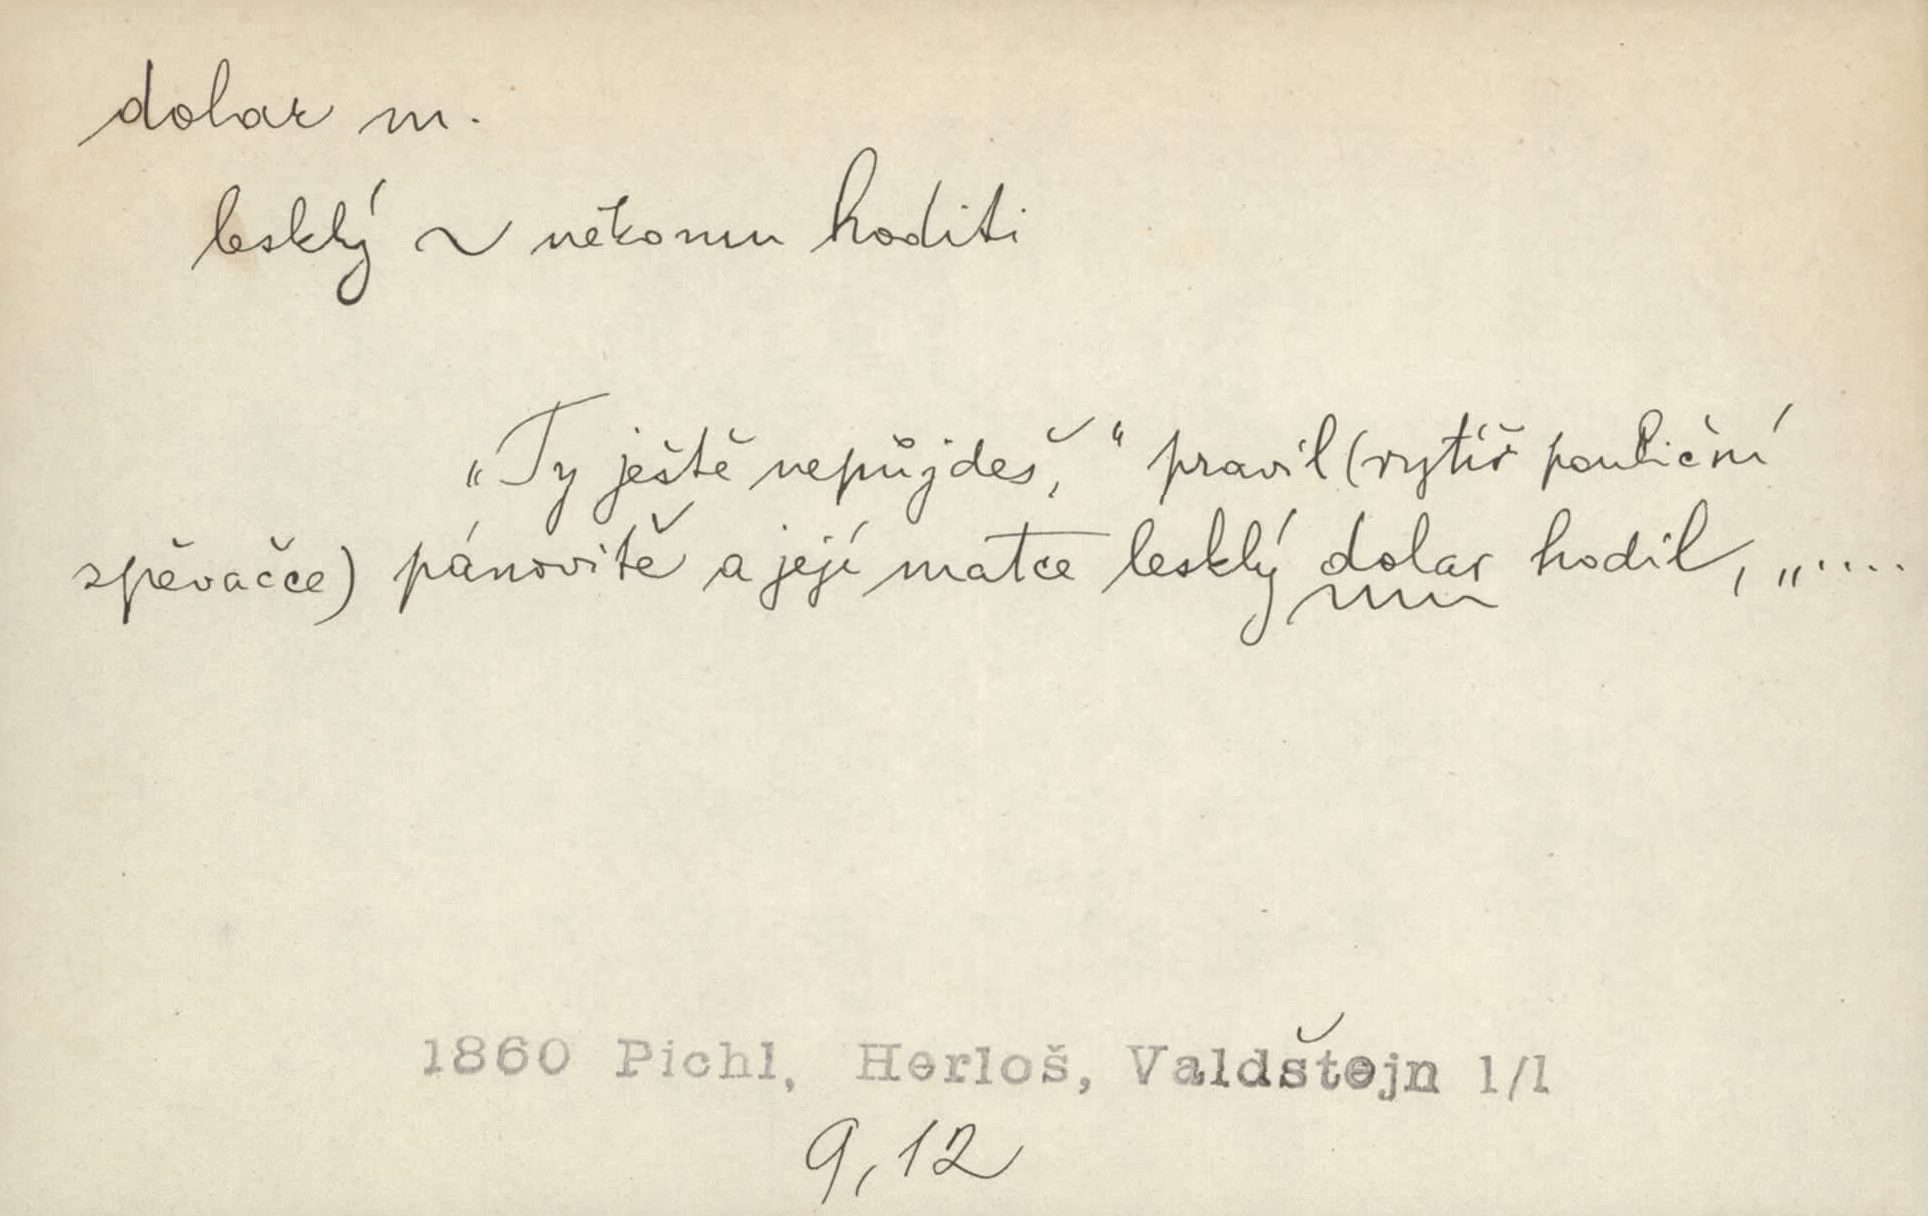 dolar m.
lesklý ~ někomu hoditi
„Ty ještě nepůjdeš,“ pravil (rytíř pouliční
zpěvačce) pánovitě a její matce lesklý dolar hodil, „....
1860 Pichl, Herloš, Valdštejn 1/1
9,12